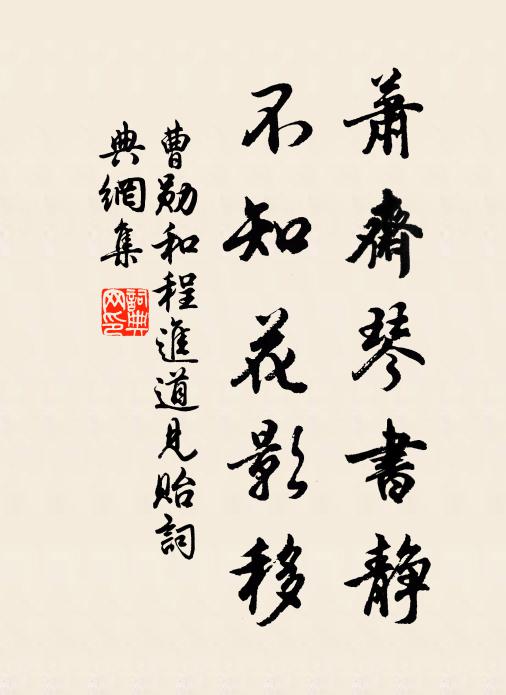 蕭齋琴書静
不知花影移
曹勋和程進道見貽詞
典網集
詞典网印